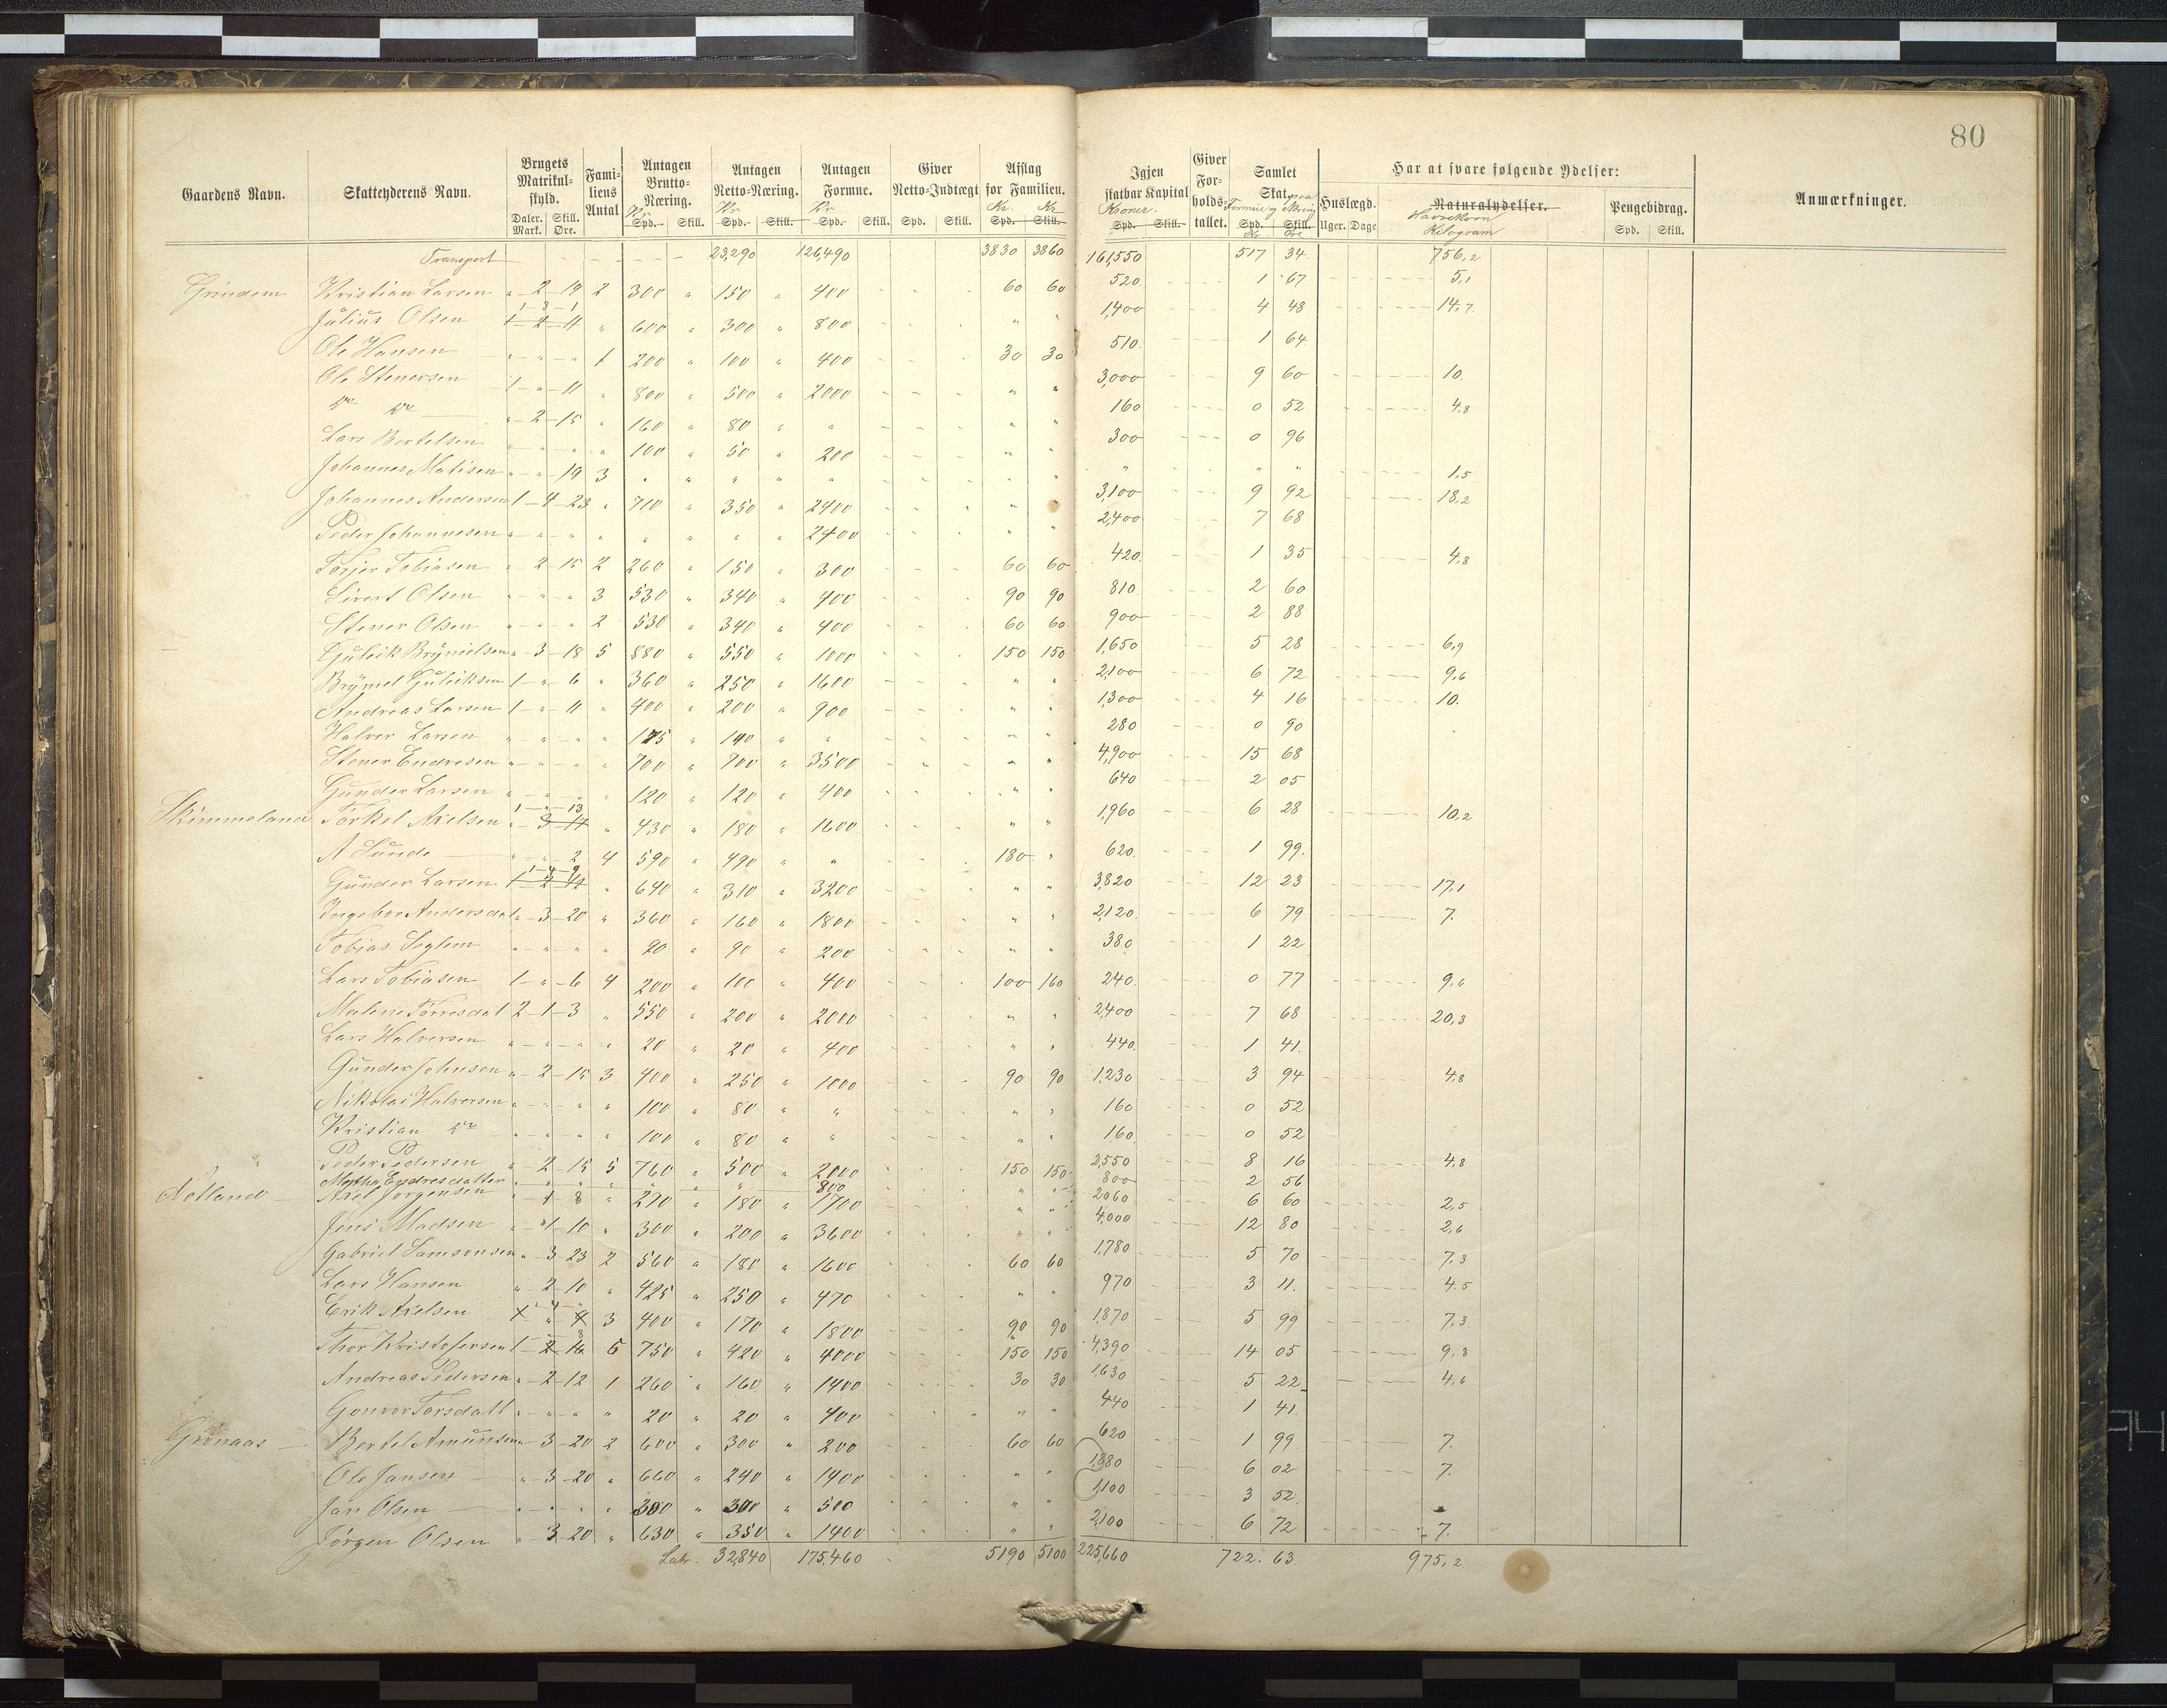 80
Gaardens Navn. Skatteyderens Navn. Brugets Matrikul-skyld. Daler. Mark. Skill. Øre. Familiens Antal Antagen Brutto-Næring. Kr Spd. Skill. Antagen Netto-Næring. Kr Spd. Skill. Antagen Formue. Kr Spd. Skill. Giver Netto-Indtægt Spd. Skill. Afslag for Familien. Kr. Spd. Kr Skill. Igjen skatbar Kapital Kroner. Spd. Skill. Giver Forholds-tallet. Samlet Skat paa Formue og Næring Spd. Kr Skill. Øre Har at svare følgende Ydelser: Huslægd. Uger. Dage Naturalydelser. Havrekorn Kilogram Pengebidrag. Spd. Skill. Anmærkninger.
Transport 23,290 126,490 3830 3860 161,550 517 34 756,2
Grindem Kristian Larsen " 2 19 2 300 " 150 " 400 60 60 520 1 67 5,1
Julius Olsen 1 3 1 1 2 11 " 600 " 300 " 800 " " 1,400 4 48 14,7
Ole Hansen " " " 1 200 " 100 " 400 30 30 510 1 64
Ole Stenersen 1 " 11 " 800 " 500 " 2000 " " 3,000 9 60 10.
do do " 2 15 " 160 " 80 " " " " 160 0 52 4,8
Lars Bertelsen " " " " 100 " 50 " 200 " " 300 0 96
Johannes Matisen " " 19 3 " " " " " " " " " " 1,5
Johannes Andersen 1 4 23 " 710 " 350 " 2400 " " 3,100 9 92 18,2
Peder Johannesen " " " " " " " " 2400 " " 2,400 7 68
Torjer Tobiasen " 2 15 2 260 " 150 " 300 60 60 420 1 35 4,8
Sivert Olsen " " " 3 530 " 340 " 400 90 90 810 2 60
Stener Olsen " " " 2 530 " 340 " 400 60 60 900 2 88
Guleik Brynielsen " 3 18 5 880 " 550 " 1000 150 150 1,650 5 28 6,9
Bryniel Guleiksen 1 " 6 " 360 " 250 " 1600 " " 2,100 6 72 9,6
Andreas Larsen 1 " 11 " 400 " 200 " 900 " " 1,300 4 16 10.
Halver Larsen " " " " 175 " 140 " " " " 280 0 90
Stener Endresen " " " " 700 " 700 " 3500 " " 4,900 15 68
Gunder Larsen " " " " 120 " 120 " 400 " " 640 2 05
Skimmeland Torkel Axelsen 1 " 13 " 3 14 " 430 " 180 " 1600 " " 1,960 6 28 10,2
A Sunde " " 2 4 590 " 490 " " 180 " 620 1 99
Gunder Larsen 1 4 9 1 2 14 " 640 " 310 " 3200 " " 3,820 12 23 17,1
Ingebor Andersdat " 3 20 " 360 " 160 " 1800 " " 2,120 6 79 7.
Tobias Seglem " " " " 90 " 90 " 200 " " 380 1 22
Lars Tobiasen 1 " 6 4 200 " 100 " 400 100 160 240 0 77 9,6
Malene Torresdat 2 1 3 " 550 " 200 " 2000 " " 2,400 7 68 20,3
Lars Halversen " " " " 20 " 20 " 400 " " 440 1 41
Gunder Johnsen " 2 15 3 400 " 250 " 1000 90 90 1,230 3 94 4,8
Nikolai Halversen " " " " 100 " 80 " " " " 160 0 52
Kristian do " " " " 100 " 80 " " " " 160 0 52
Peder Pedersen " 2 15 5 760 " 500 " 2000 150 150 2,550 8 16 4,8
Martha Endresdatter " " " " " " " " 800 " " 800 2 56
Aetland Axel Jørgensen " 1 8 " 270 " 180 " 1700 " " 2060 6 60 2,5
Jens Madsen " 1 10 " 300 " 200 " 3600 " " 4,000 12 80 2,6
Gabriel Samsonsen " 3 23 2 560 " 180 " 1600 60 60 1,780 5 70 7,3
Lars Hansen " 2 10 " 425 " 250 " 470 " " 970 3 11 4,5
Erik Axelsen " 4 " 3 400 " 170 " 1800 90 90 1,870 5 99 7,3
Thor Kristofersen 1 2 16 5 750 " 420 " 4000 150 150 4,390 14 05 9,8
Andreas Pedersen " 2 12 1 260 " 160 " 1400 30 30 1,630 5 22 4,6
Gonvor Torsdatt " " " " 20 " 20 " 400 " " 440 1 41
Grønaas Bertel Amundsen " 3 20 2 600 " 300 " 200 60 60 620 1 99 7.
Ole Jansen " 3 20 " 660 " 240 " 1400 " " 1,880 6 02 7.
Jan Olsen " " " " 300 " 300 " 500 " " 1,100 3 52
Jörgen Olsen " 3 20 " 630 " 350 " 1400 " " 2,100 6 72 7.
Latr. 32,840 175,460 5190 5100 225,660 722. 63 975,2